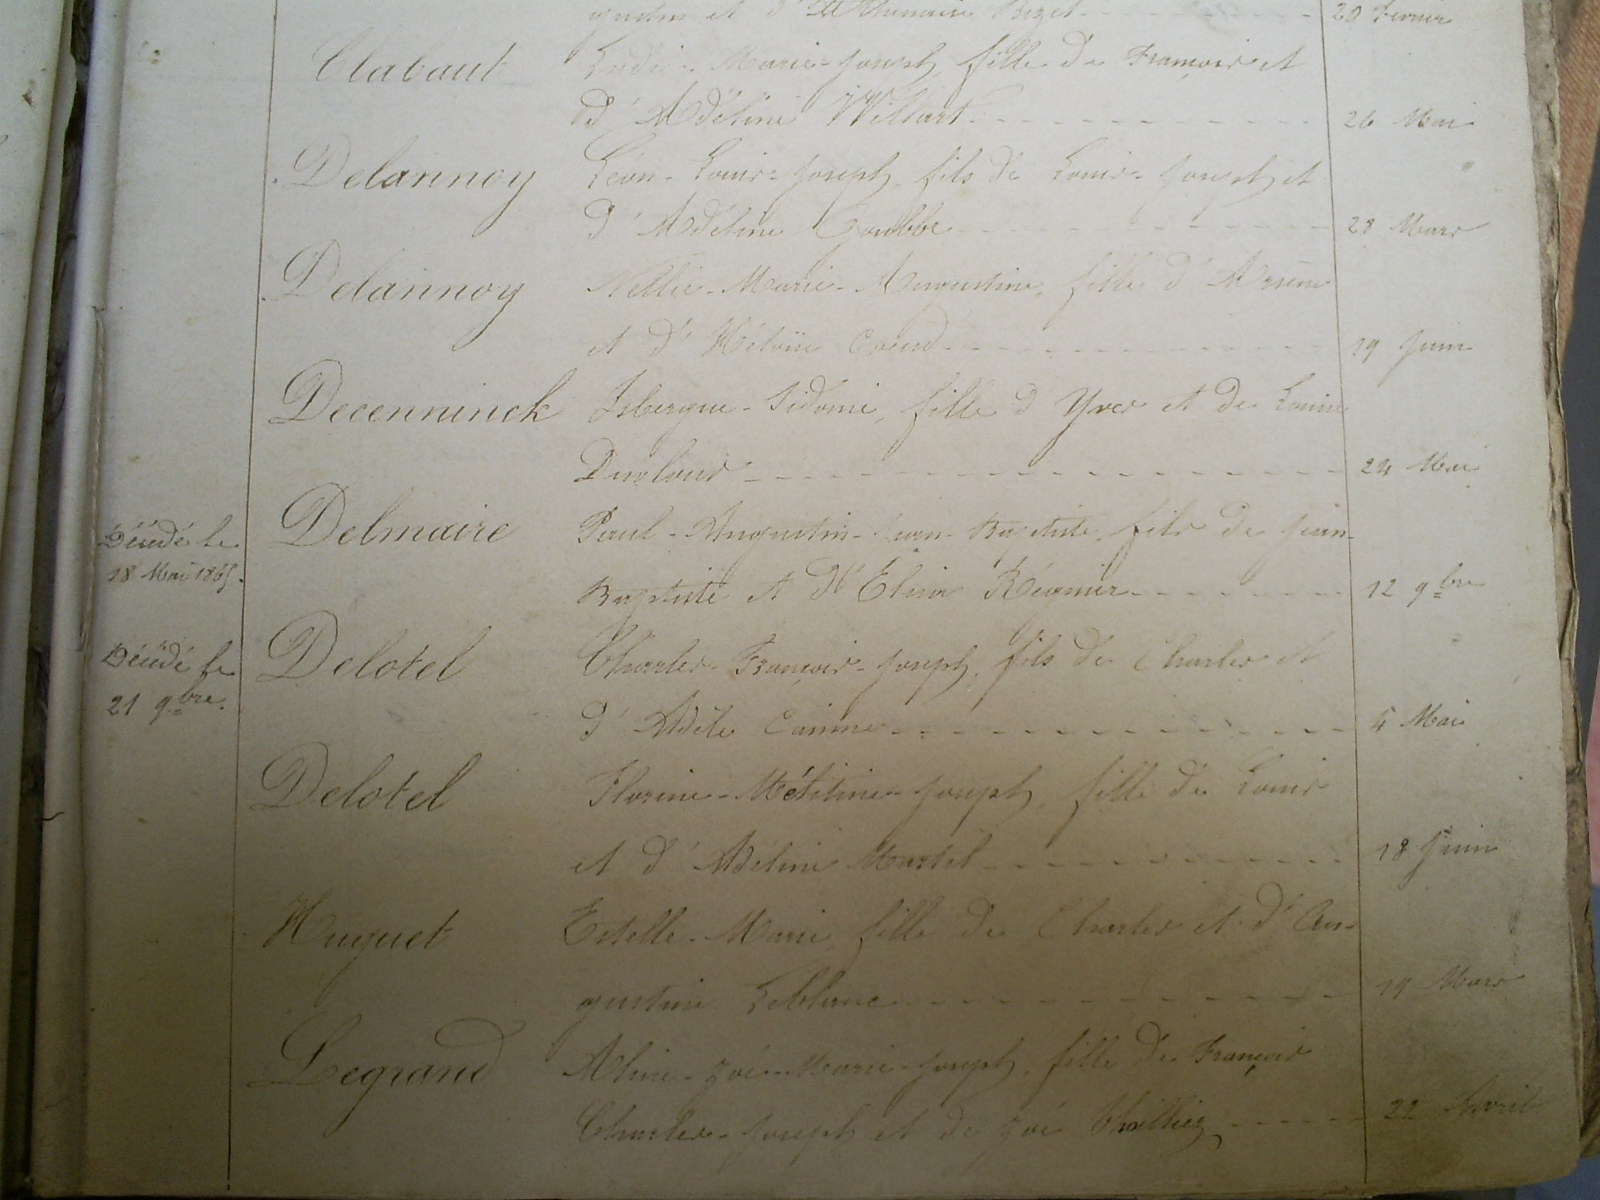 et d' 20 Février
Clabaut Marie-Joseph, fille de François et
d'Adéline Willart 26 Mai
Delannoy Léon-Louis-Joseph, fils de Louis-Joseph et
d'Adéline Goubbe 28 Mars
Delannoy Nellie-Marie-Augustine, fille d'Arsène
et d'Héloïse 19 Juin
Decenninck Isbergue-Sidonie, fille d'Yves et de Louise
24 Mai
Décédé le Delmaire Paul-Augustin-Jean-Baptiste, fils de Jean-
18 Mai 1865. Baptiste et d'Elisa Régnier 12 9bre
Décédé le Delotel Charles-François-Joseph, fils de Charles et
21 9bre. d'Adèle 5 Mai
Delotel Florine-Mélitine-Joseph, fille de Louis
et d'Adéline Martel 18 Juin
Huguet Estelle-Marie, fille de Charles et d'Au-
gustine Leblanc 19 Mars
Legrand Aline-Zoé-Marie-Joseph, fille de François
Charles-Joseph et de Zoé 22 Avril